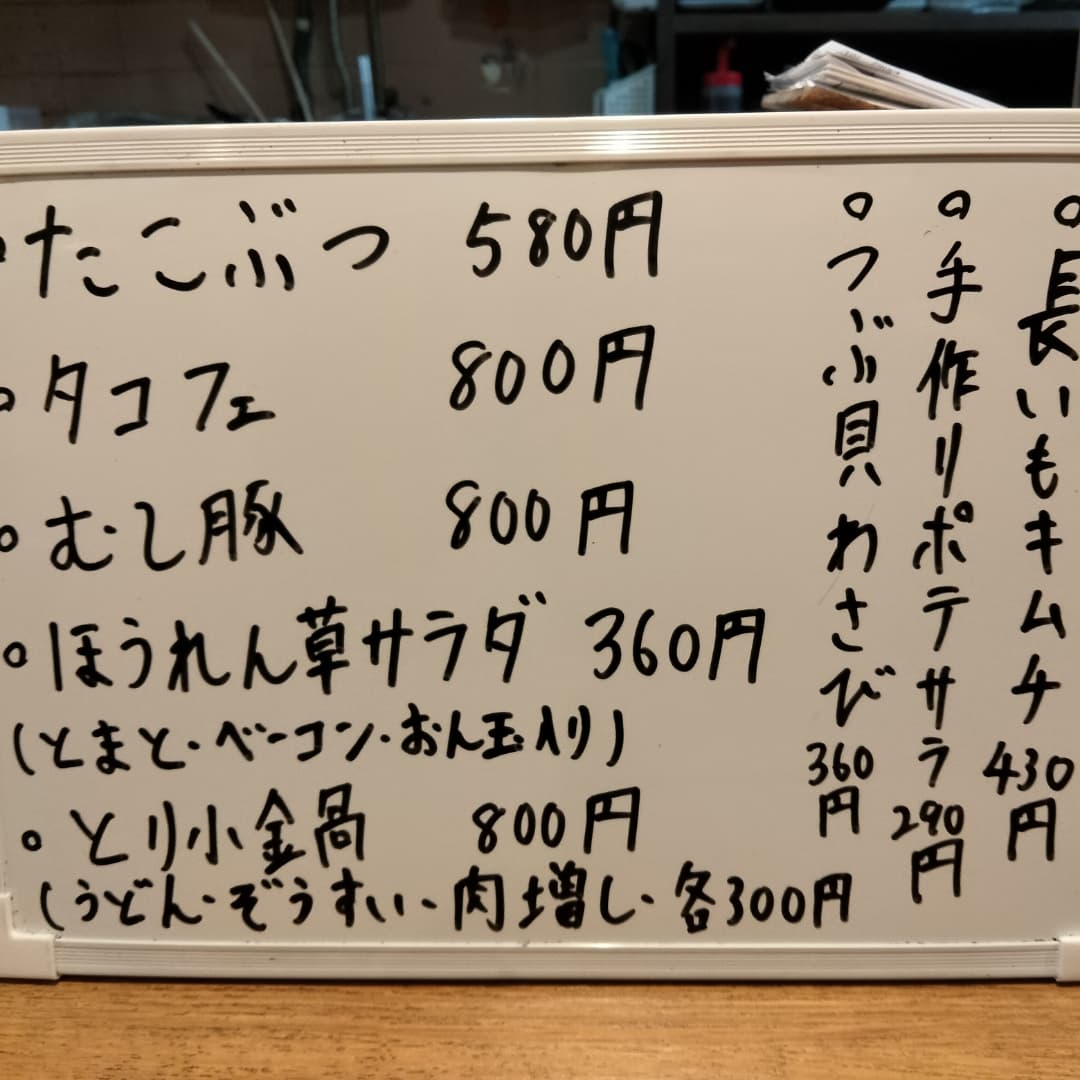 ・たこぶつ 580円
・タコフェ 800円
・むし豚 800円
・ほうれん草サラダ 360円
(とまと・ベーコン・おん玉入り)
・とり小鍋 800円
(うどん・ぞうすい・肉増し・各300円
・長いもキムチ 430円
・手作りポテサラ 290円
・つぶ貝わさび 360円